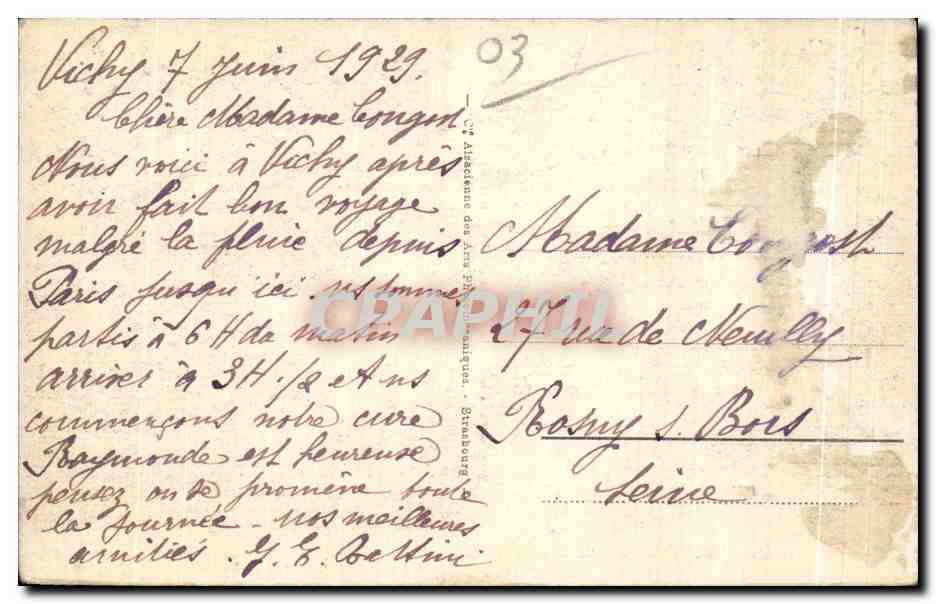 Vichy 7 Juin 1929.
Chère Madame Congost
Nous voici à Vichy après
avoir fait bon voyage
malgré la pluie depuis
Paris jusqu'ici. ns sommes
partis à 6 H du matin
arriver à 3 H. 1/2 et ns
commençons notre cure
Raymonde est heureuse
pensez on se promène toute
la journée - nos meilleures
amitiés. G. E.
03
Cie Alsacienne des Arts Photomécaniques. - Strasbourg
Madame Congost
27 rue de Neuilly
Rosny s. Bois
Seine
CRAPHIL